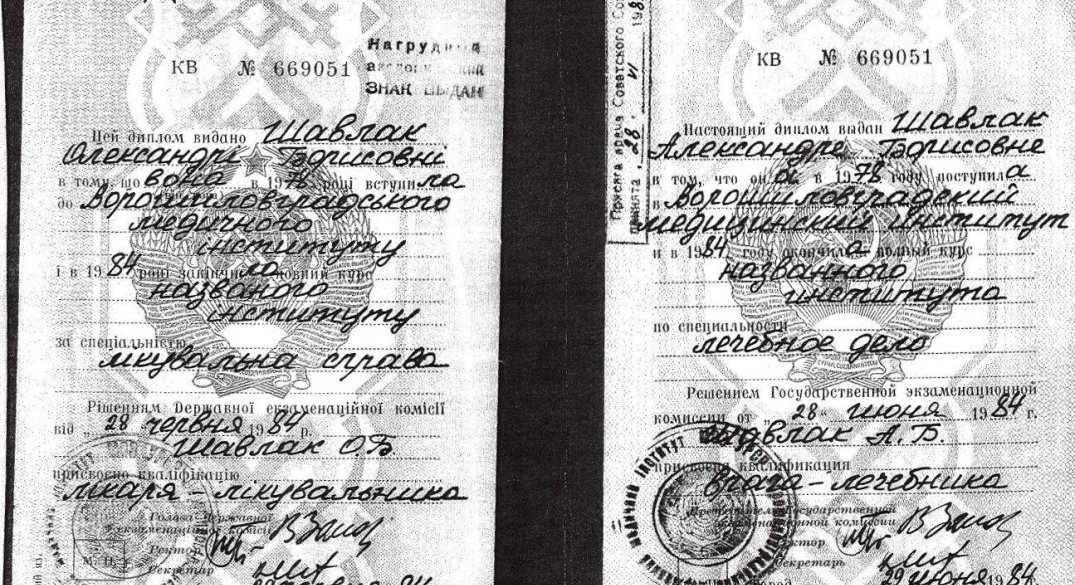 КВ № 669051
Нагрудный
академический
ЗНАК ВЫДАН
Цей диплом видано Шавлак
Олександрі Борисовні
в тому, що вона в 1978 році вступила
до Ворошиловградського
медичного
інституту
і в 1984 році закінчила повний курс
названого
інституту
за спеціальністю
лікувальна справа
Рішенням Державної екзаменаційної комісії
від „28" червня 1984 р.
Шавлак О.Б.
присвоєно кваліфікацію
лікаря - лікувальника
Голова Державної
екзаменаційної комісії
Ректор
Секретар
М. П.
Присяга врача Советского Со
принята „28" VI 198
КВ № 669051
Настоящий диплом выдан Шавлак
Александре Борисовне
в том, что она в 1978 году поступила
в Ворошиловградский
медицинский институт
и в 1984 году окончила полный курс
названного
института
по специальности
лечебное дело
Решением Государственной экзаменационной
комиссии от „28" июня 1984 г.
Шавлак А.Б.
присвоена квалификация
врача - лечебника
Председатель Государственной
экзаменационной комиссии
Ректор
Секретарь
Город
29 июня 84